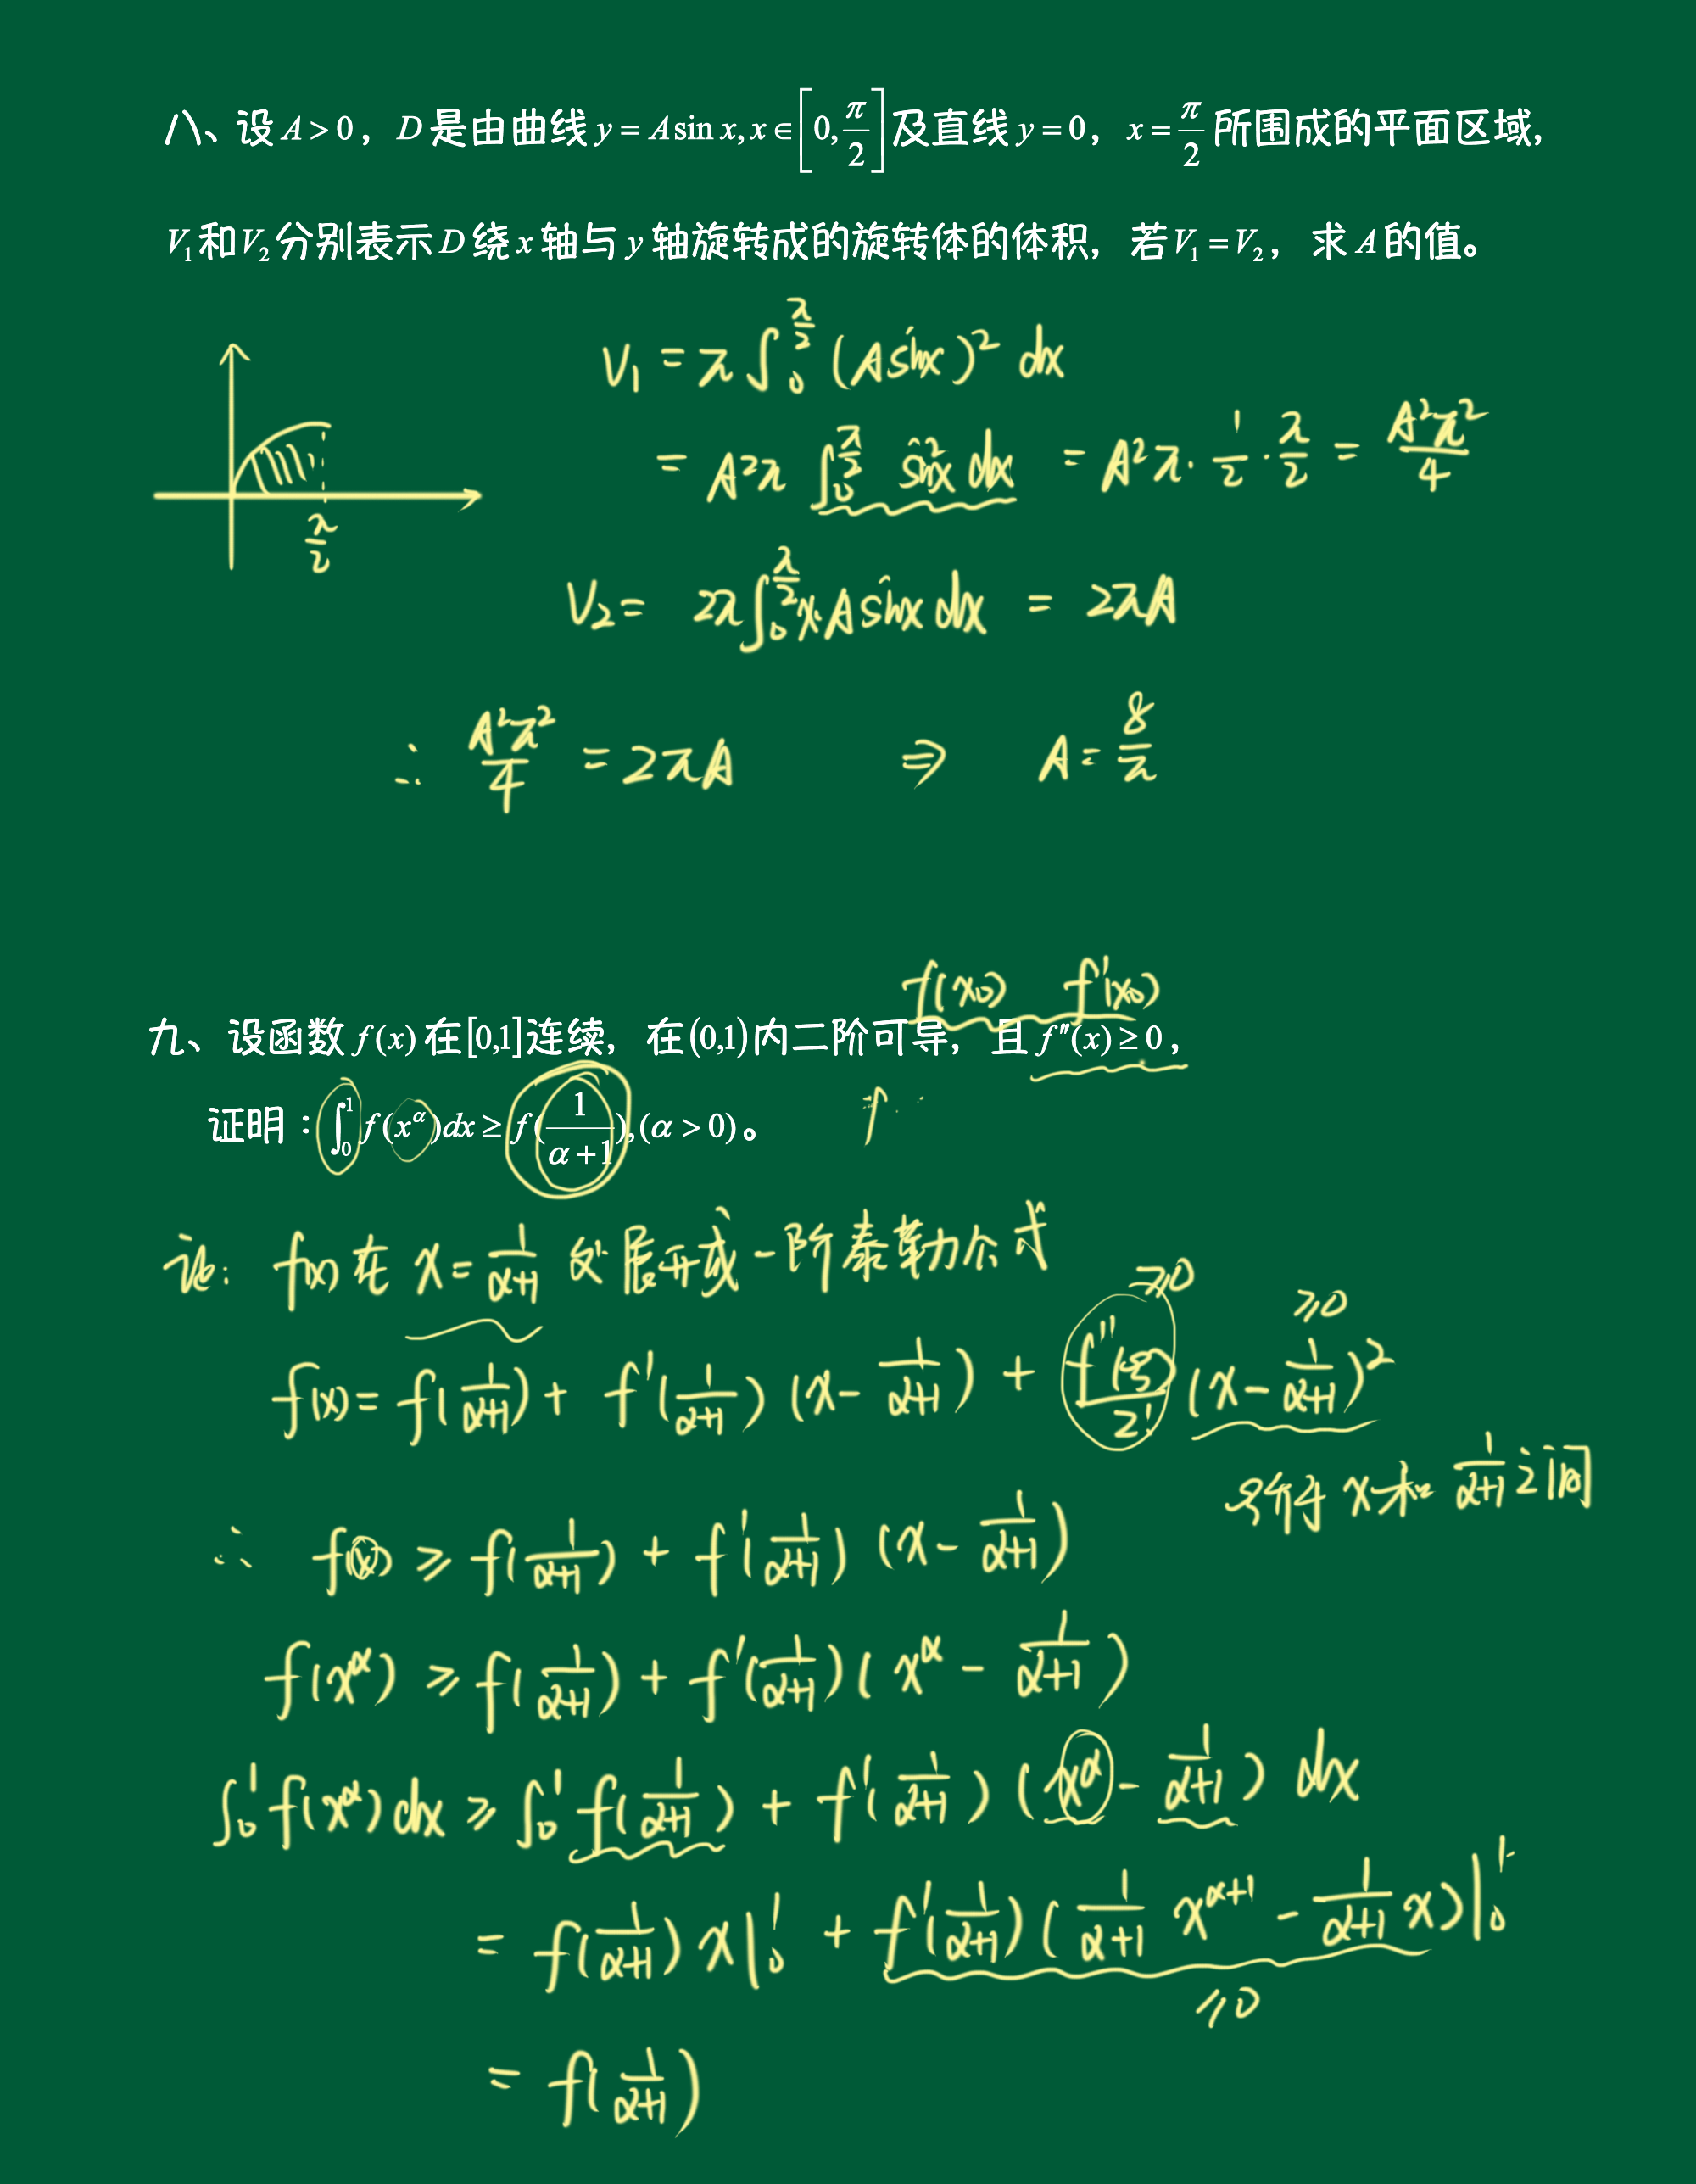 八、设 A > 0，D 是由曲线 y = A sin x, x ∈ [0, π/2] 及直线 y = 0，x = π/2 所围成的平面区域，
V₁ 和 V₂ 分别表示 D 绕 x 轴与 y 轴旋转成的旋转体的体积，若 V₁ = V₂，求 A 的值。
V₁ = π ∫₀^(π/2) (A sinx)² dx
= A²π ∫₀^(π/2) sin²x dx = A²π · 1/2 · π/2 = A²π²/4
π/2
V₂ = 2π ∫₀^(π/2) x·A sinx dx = 2πA
∴ A²π²/4 = 2πA ⇒ A = 8/π
f(x₀) f'(x₀)
九、设函数 f(x) 在 [0,1] 连续，在 (0,1) 内二阶可导，且 f''(x) ≥ 0，
证明：∫₀¹ f(x^α)dx ≥ f(1/(α+1)), (α > 0)。
证: f(x) 在 x = 1/(α+1) 处展开成一阶泰勒公式
≥0 ≥0
f(x) = f(1/(α+1)) + f'(1/(α+1)) (x - 1/(α+1)) + f''(ξ)/2! (x - 1/(α+1))²
ξ介于 x 和 1/(α+1) 之间
∴ f(x) ≥ f(1/(α+1)) + f'(1/(α+1)) (x - 1/(α+1))
f(x^α) ≥ f(1/(α+1)) + f'(1/(α+1)) (x^α - 1/(α+1))
∫₀¹ f(x^α) dx ≥ ∫₀¹ f(1/(α+1)) + f'(1/(α+1)) (x^α - 1/(α+1)) dx
= f(1/(α+1)) x|₀¹ + f'(1/(α+1)) (1/(α+1) x^(α+1) - 1/(α+1) x)|₀¹
= f(1/(α+1))